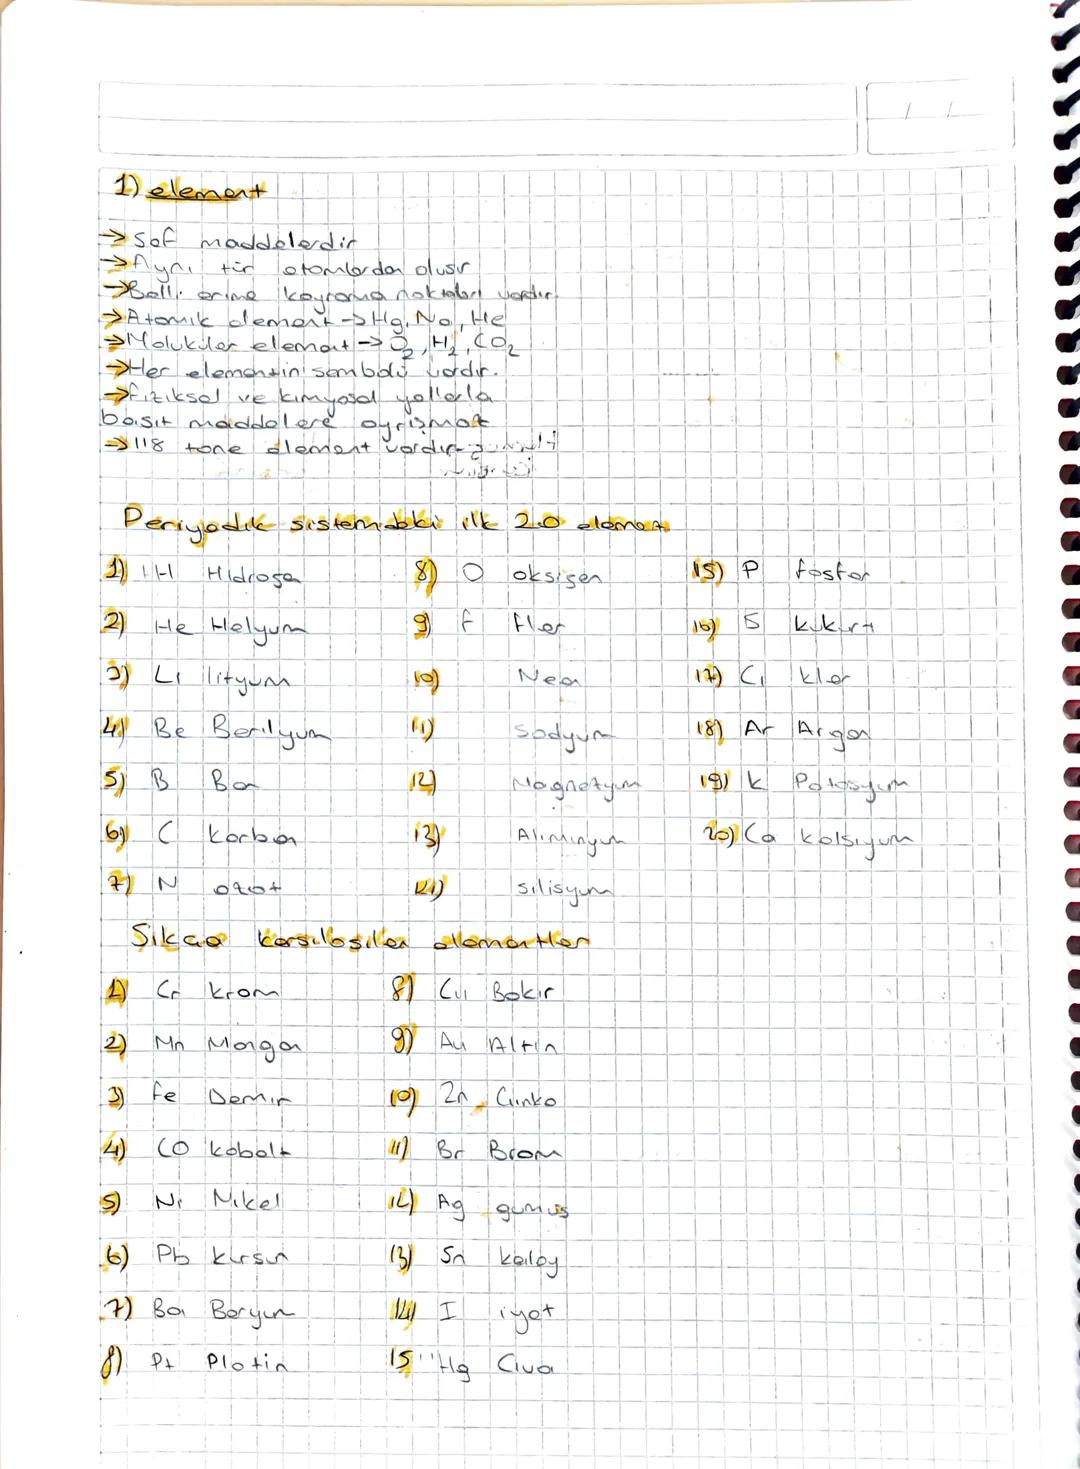 1) element
→ Saf maddelerdir
→ Aynı tür atomlardan oluşur
→ Belli erime kaynama noktaları vardır.
→ Atomik element → Hg, Na, He
→ Moluküler element → O2, H2, CO2
→ Her elementin sembolü vardır.
→ fiziksel ve kimyasal yollarla
basit maddelere ayrışmaz
→ 118 tane element vardır
Periyodik sistemdeki ilk 20 element
1) H Hidrojen
2) He Helyum
3) Li lityum
4) Be Berilyum
5) B Bor
6) C karbon
7) N azot
8) O oksijen
9) f flor
10) Neon
11) sodyum
12) Magnezyum
13) Aliminyum
14) silisyum
15) P fosfor
16) S kükürt
17) Cl klor
18) Ar Argon
19) k Potasyum
20) Ca kalsiyum
Sıkça karşılaşılan elementler
1) Cr krom
2) Mn Mangan
3) fe Demir
4) CO kobalt
5) Ni Nikel
6) Pb kurşun
7) Ba Baryum
8) Pt Platin
8) Cu Bakır
9) Au Altın
10) Zn Çinko
11) Br Brom
12) Ag gümüş
13) Sn kalay
14) I iyot
15 Hg Cıva